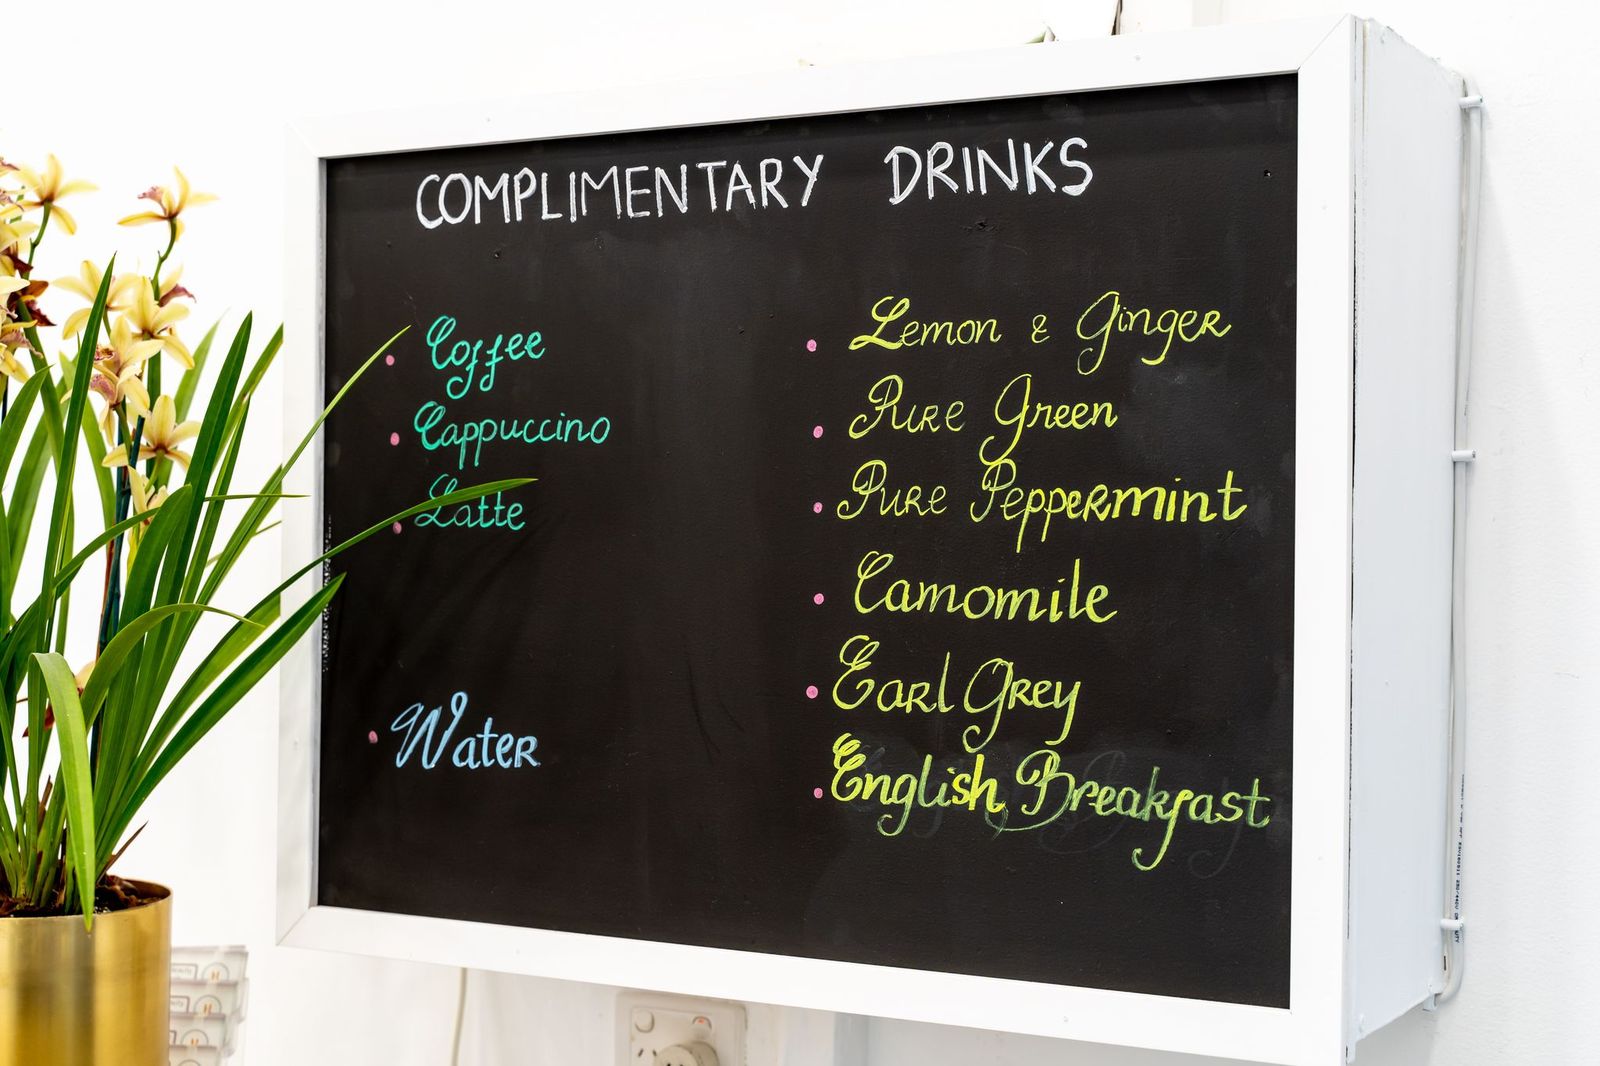 COMPLIMENTARY DRINKS
• Coffee
• Cappuccino
• Latte
• Water
• Lemon & Ginger
• Pure Green
• Pure Peppermint
• Camomile
• Earl Grey
• English Breakfast